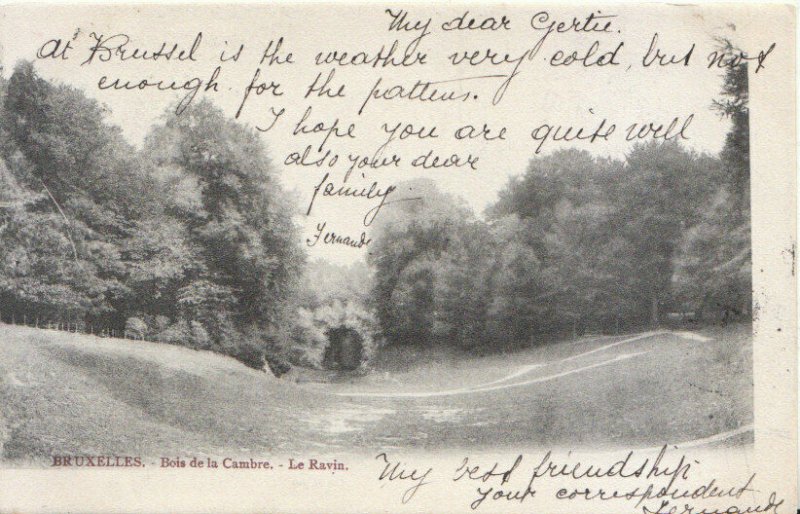 My dear Gertie.
At Brussel is the weather very cold, but not
enough for the pattens.
I hope you are quite well
also your dear
family
Fernande
BRUXELLES. - Bois de la Cambre. - Le Ravin.
My best friendship
Your correspondent
Fernande